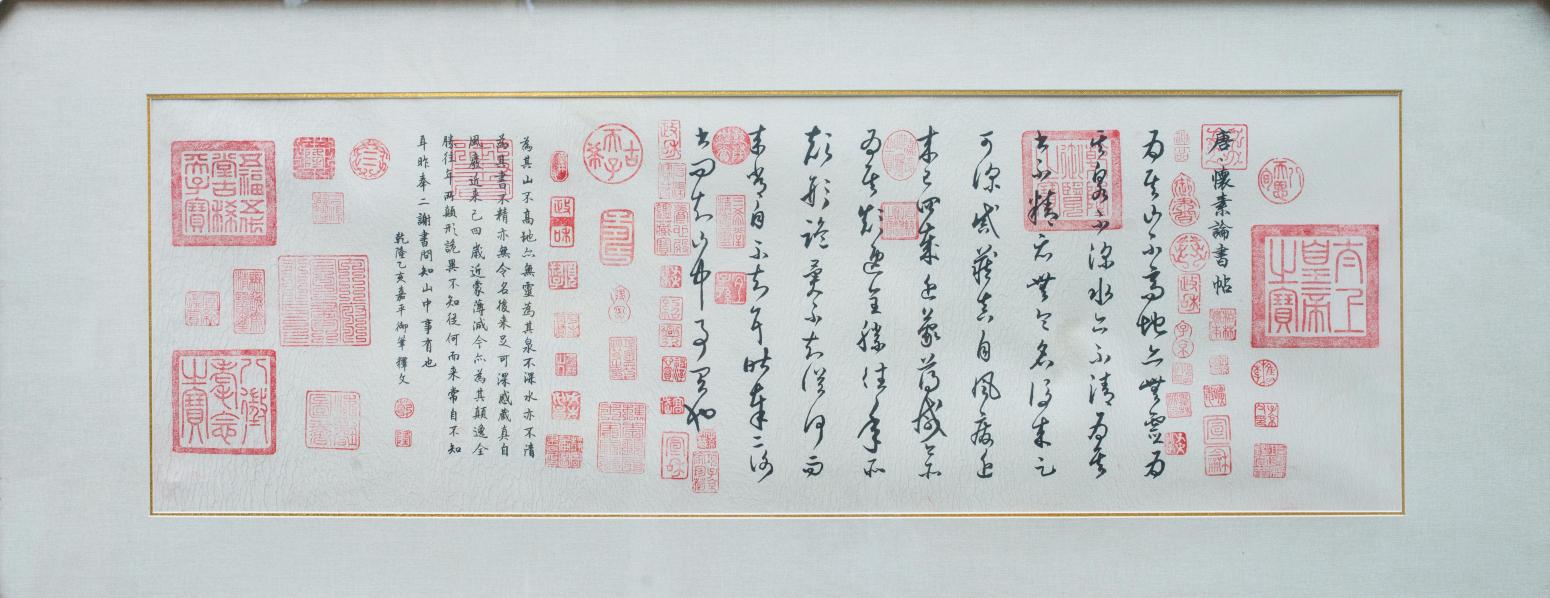 太上皇帝之寶
唐懷素論書帖
為其山不高地亦無靈為
其泉不深水亦不清為其
書不精亦無令名後來足
可深慼藏真自風廢近
來已四歲近蒙薄減今亦
為其顛逸全勝往年所
顛形詭異不知從何而
來常自不知耳昨奉二謝
書問知山中事有也
古希天子
為其山不高地亦無靈為其泉不深水亦不清
為其書不精亦無令名後來足可深慼藏真自
風廢近來已四歲近蒙薄減今亦為其顛逸全
勝往年所顛形詭異不知從何而來常自不知
耳昨奉二謝書問知山中事有也
乾隆乙亥嘉平御筆釋文
五福五代堂古稀天子寶
八徵耄念之寶